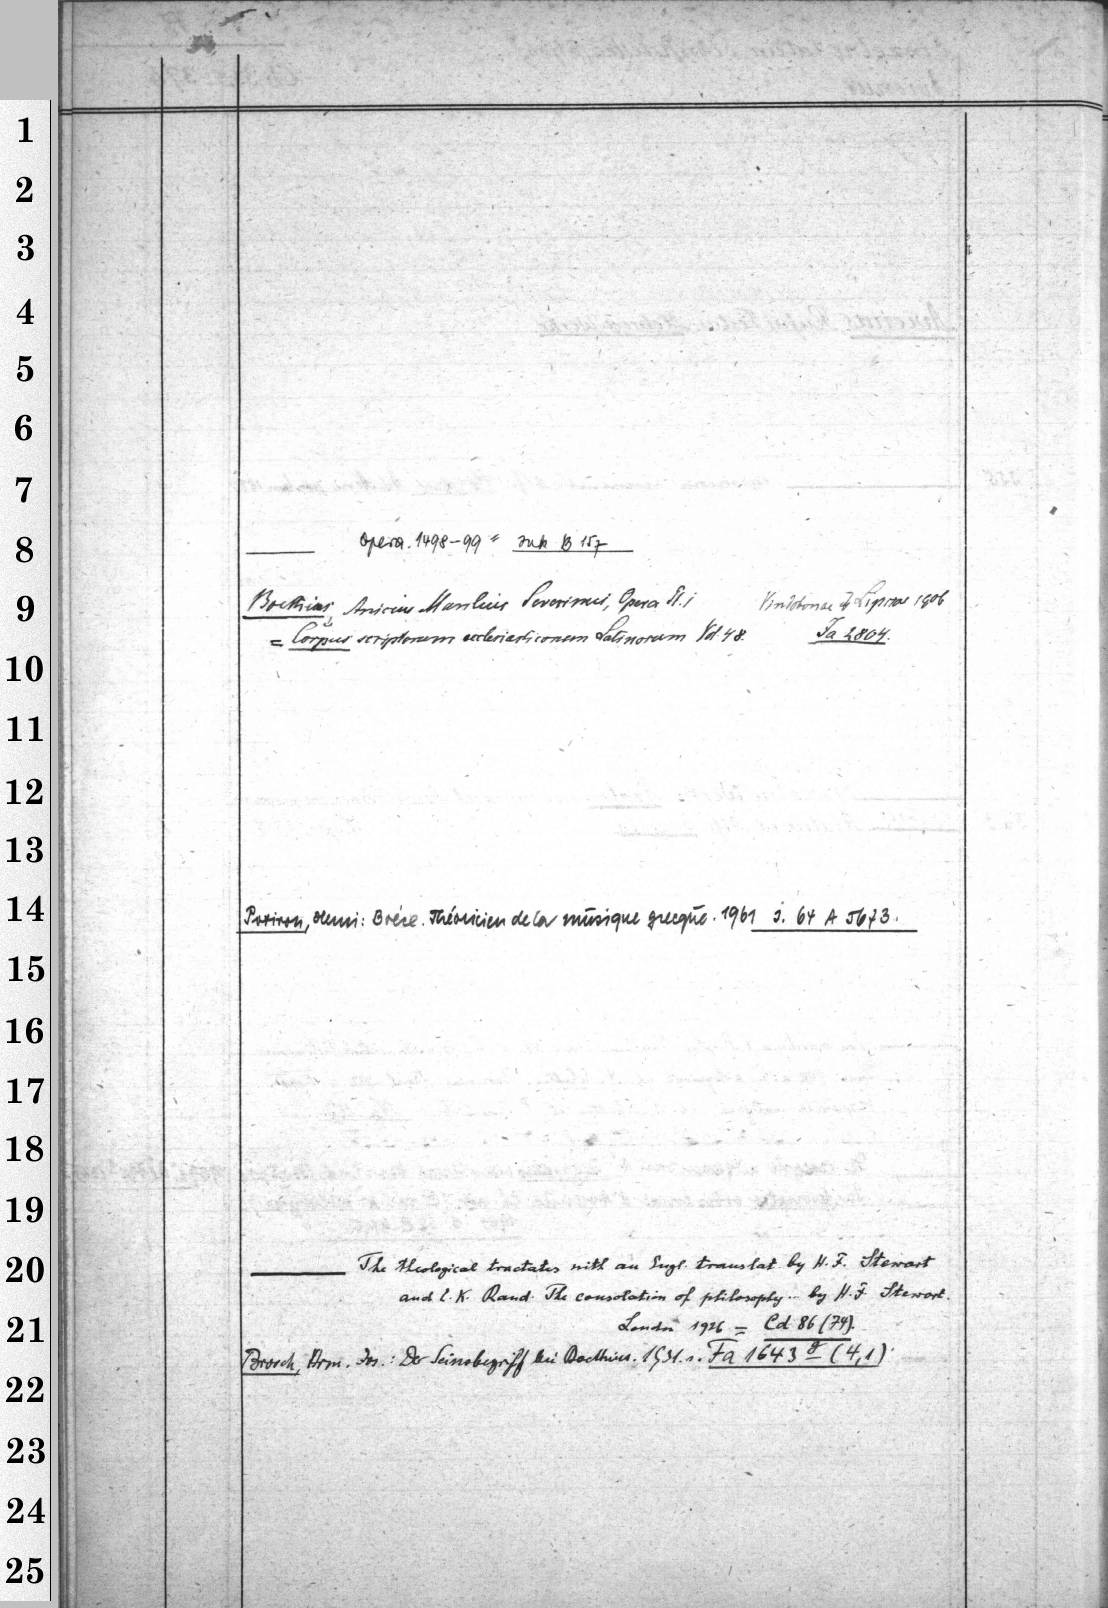 1
2
3
4
5
6
7
8
9
10
11
12
13
14
15
16
17
18
19
20
21
22
23
24
25
Opera. 1498-99 = Ink B 157
Boethius, Anicius Manlius Severinus, Opera P. 1 Vindobonae & Lipsiae 1906
= Corpus scriptorum ecclesiasticorum Latinorum Vol 48. Fa 2804.
Potiron, Henri: Boéce. Théoricien de la musique grecque. 1961 s. 64 A 5673.
The theological tractates with an Engl. translat. by H. F. Stewart
and E. K. Rand. The consolation of philosophy .. by H. F. Stewart.
London 1926 = Cd 86 (74).
Brosch, Hrm. Jos.: Der Seinsbegriff bei Boethius. 1931. s. Fa 1643 g (4,1).